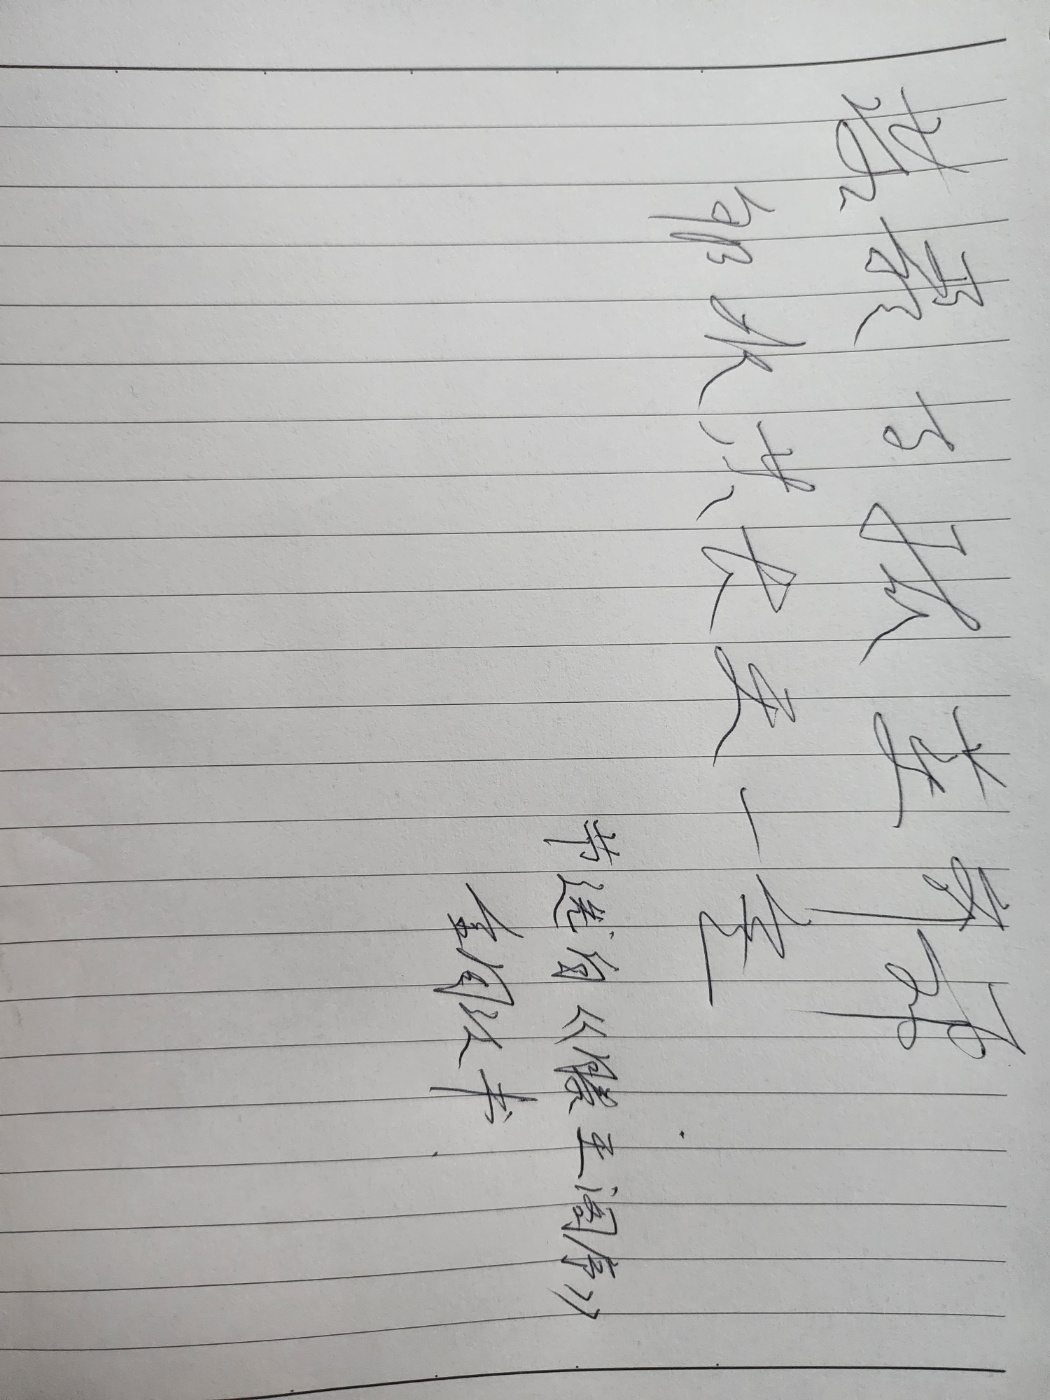 落霞与孤鹜齐飞
秋水共长天一色
节选自《滕王阁序》